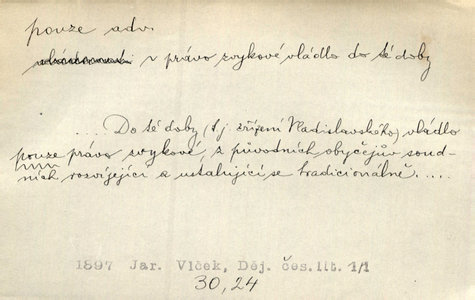 pouze adv.
v právo zvykové vládlo do té doby
.... Do té doby (t. j. zřízení Vladislavského) vládlo
pouze právo zvykové, z původních obyčejův soud-
ních rozvíjející a ustalující se tradicionálně. ....
1897 Jar. Vlček, Děj. čes. lit. 1/1
30, 24